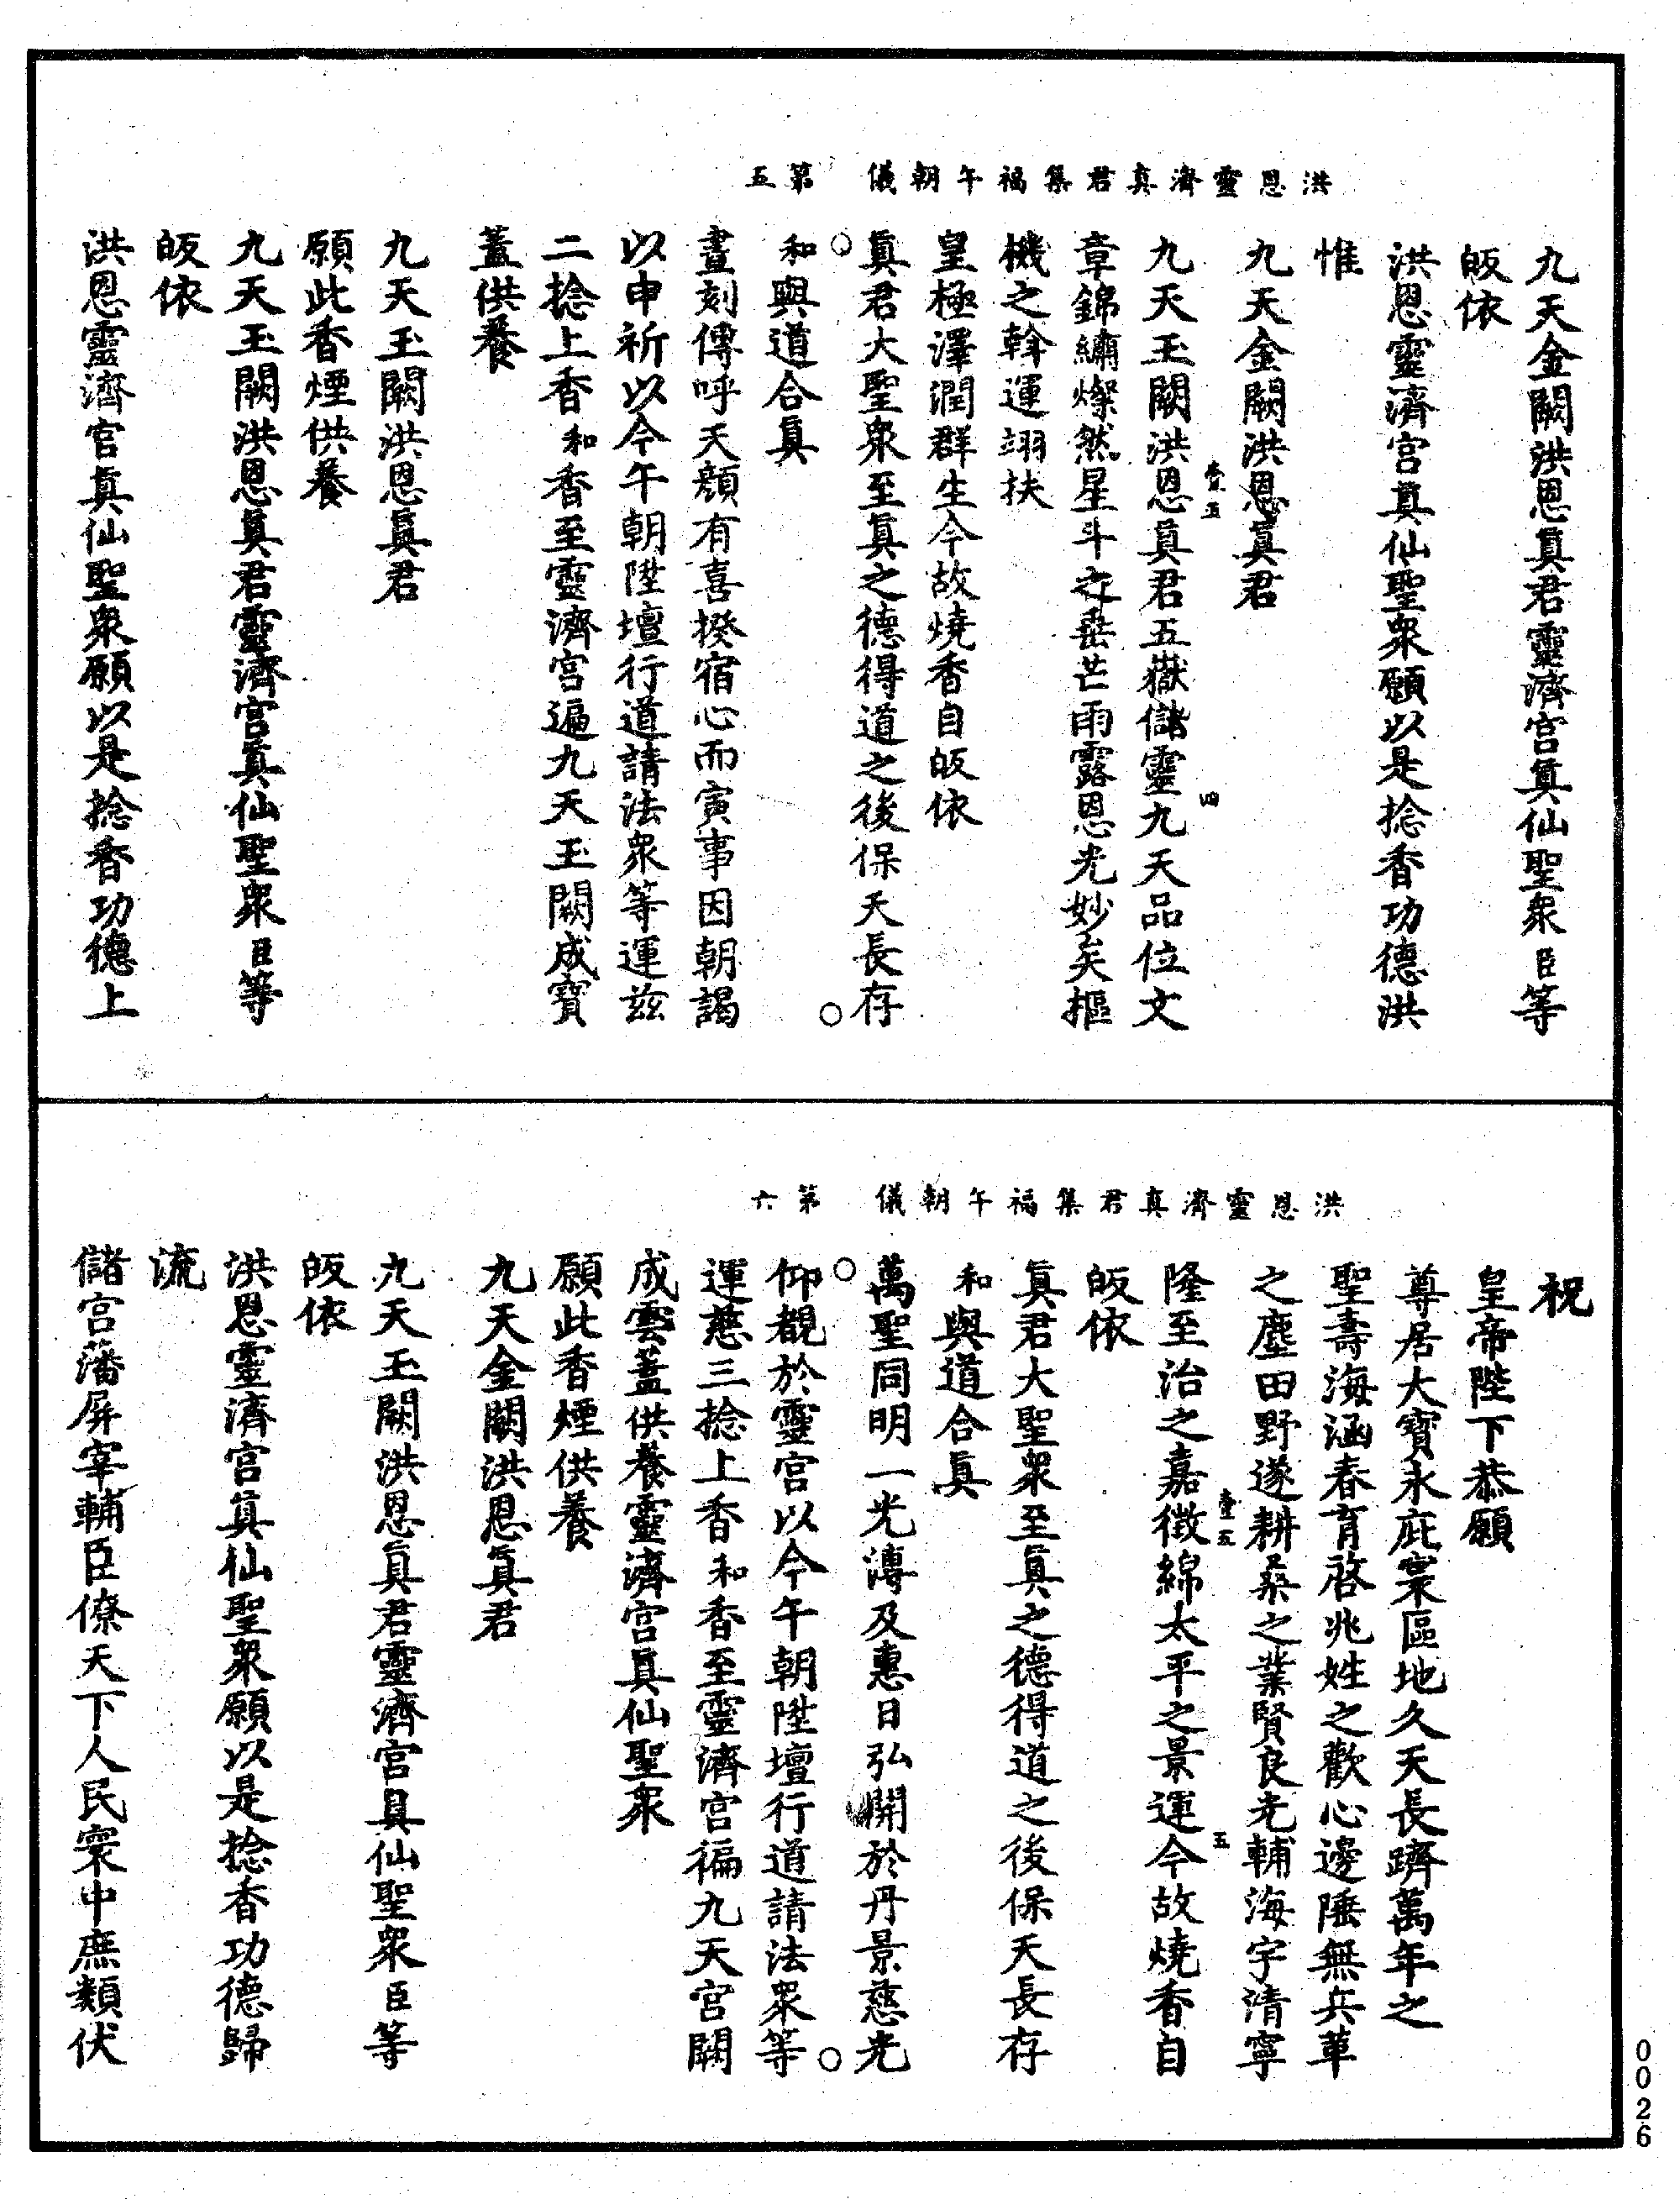 洪恩靈濟真君集福午朝儀　第五
九天金闕洪恩眞君靈濟宮眞仙聖衆臣等
皈依
洪恩靈濟宮眞仙聖衆願以是捻香功德洪
惟
九天金闕洪恩眞君
九天玉闕洪恩眞君五嶽儲靈九天品位文
壹五
四
章錦繡燦然星斗之垂芒雨露恩光妙矣樞
機之斡運翊扶
皇極澤潤群生今故燒香自皈依
眞君大聖衆至眞之德得道之後保天長存
和與道合眞
○
○
晝刻傳呼天顏有喜揆宿心而寅事因朝謁
以申祈以今午朝陞壇行道請法衆等運茲
二捻上香和香至靈濟宮遍九天玉闕成寶
蓋供養
九天玉闕洪恩眞君
願此香煙供養
九天玉闕洪恩眞君靈濟宮眞仙聖衆臣等
皈依
洪恩靈濟宮眞仙聖衆願以是捻香功德上
洪恩靈濟真君集福午朝儀　第六
祝
皇帝陛下恭願
尊居大寶永庇寰區地久天長躋萬年之
聖壽海涵春育啓兆姓之歡心邊陲無兵革
之塵田野遂耕桑之業賢良光輔海宇清寧
壹五
五
隆至治之嘉徵綿太平之景運今故燒香自
皈依
眞君大聖衆至眞之德得道之後保天長存
和與道合眞
萬聖同明一光溥及惠日弘開於丹景慈光
○
○
仰覩於靈宮以今午朝陞壇行道請法衆等
運慈三捻上香和香至靈濟宮徧九天宮闕
成雲蓋供養靈濟宮眞仙聖衆
願此香煙供養
九天金闕洪恩眞君
九天玉闕洪恩眞君靈濟宮眞仙聖衆臣等
皈依
洪恩靈濟宮眞仙聖衆願以是捻香功德歸
流
儲宮藩屏宰輔臣僚天下人民寰中庶類伏
0026